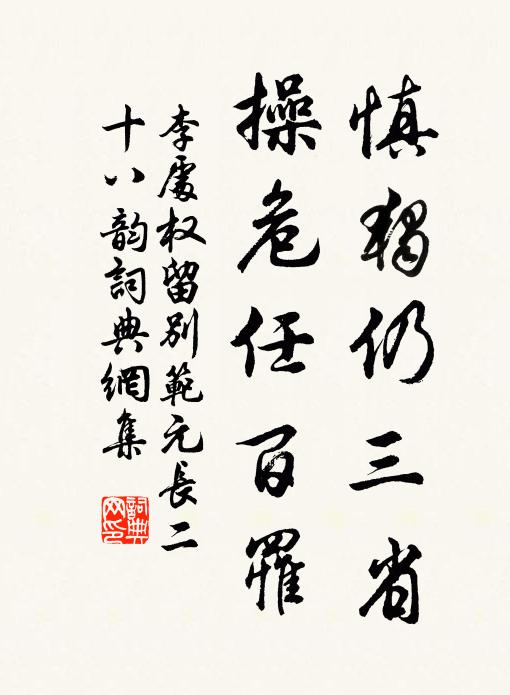 慎獨仍三省
操危任百罹
李處权留別範元長二
十八韵詞典網集
詞典
网印